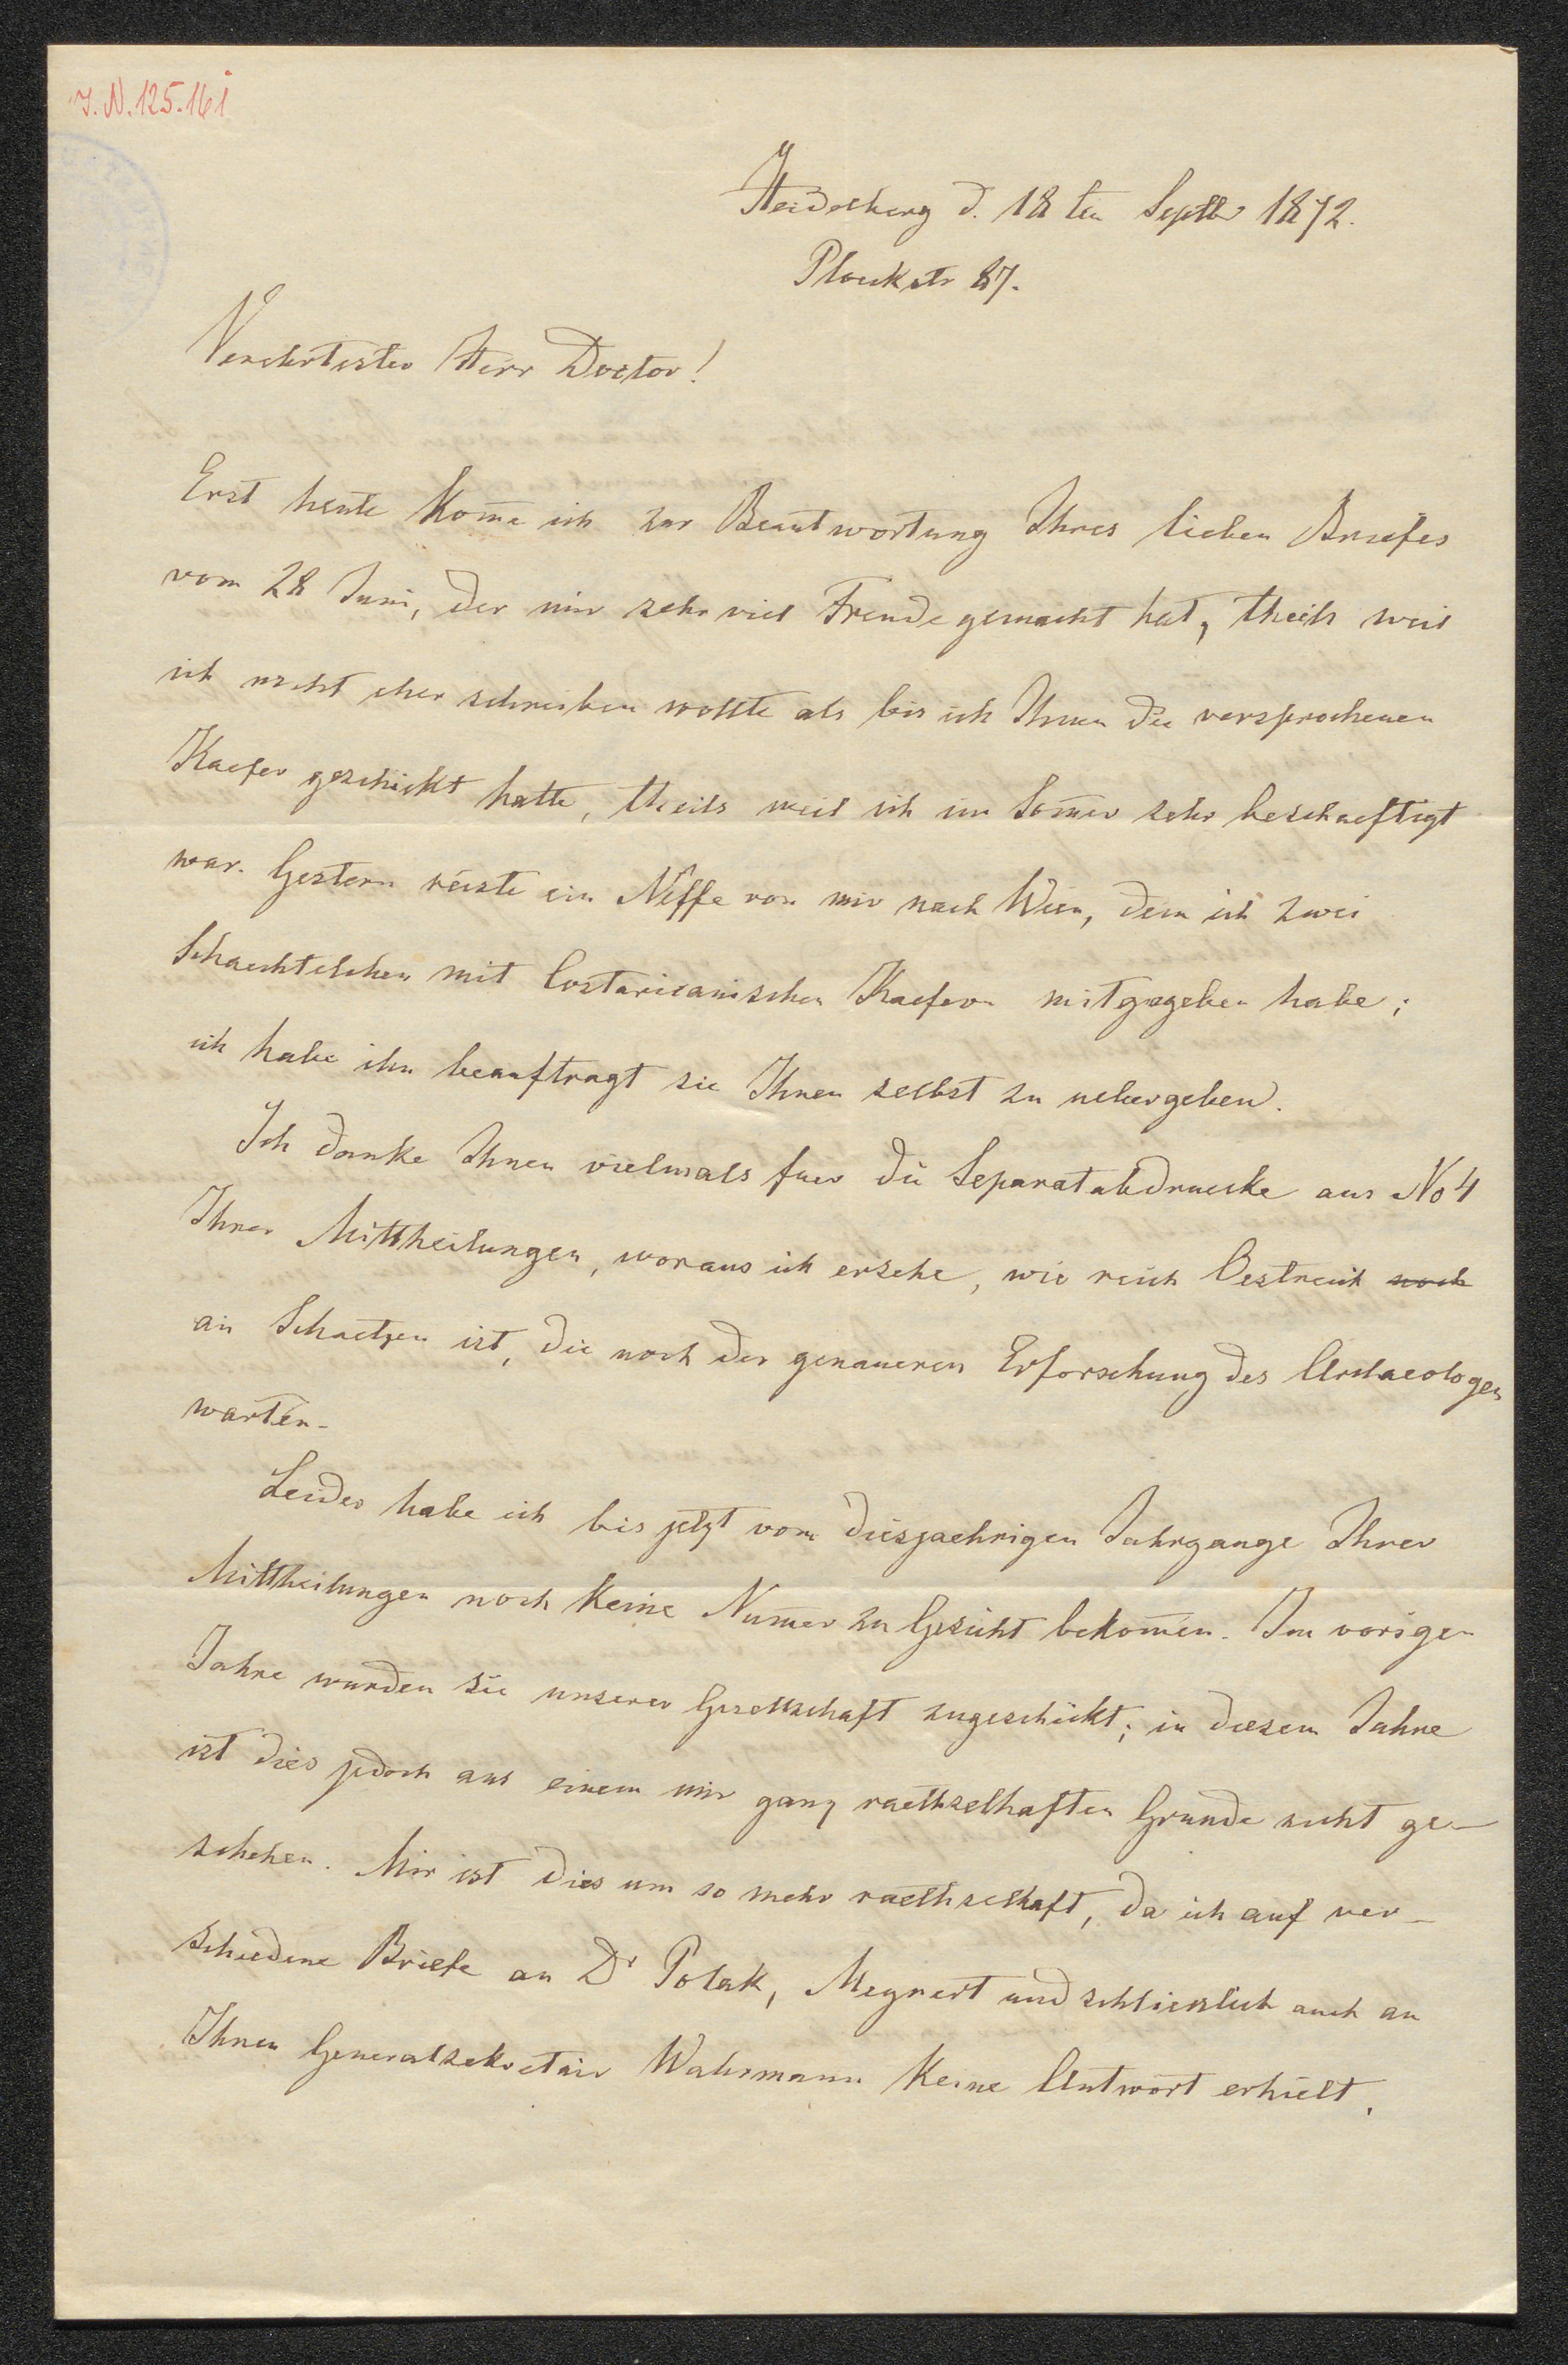 J. N. 125.161
Heidelberg d. 18 ten Septbr 1872.
Ploeckstr 87.
Verehrtester Herr Doctor!
Erst heute kom̄e ich zur Beantwortung Ihres lieben Briefes
vom 28 Juni, der mir sehr viel Freude gemacht hat, theils weil
ich nicht eher schreiben wollte als bis ich Ihnen die versprochenen
Kaefer geschickt hatte, theils weil ich im Som̄er sehr beschaeftigt
war. Gestern reiste ein Neffe von mir nach Wien, dem ich zwei
Schaechtelchen mit Costaricanischen Kaefern mitgegeben habe;
ich habe ihn beauftragt sie Ihnen selbst zu uebergeben.
Ich danke Ihnen vielmals fuer die Separatabdruecke aus No 4
Ihrer Mittheilungen, woraus ich ersehe, wie reich Oestreich noch
an Schaetzen ist, die noch der genaueren Erforschung des Archaeologen
warten.
Leider habe ich bis jetzt vom diesjaehrigen Jahrgange Ihrer
Mittheilungen noch keine Num̄er zu Gesicht bekom̄en. Im vorigen
Jahre wurden sie unserer Gesellschaft zugeschickt; in diesem Jahre
ist dies jedoch aus einem mir ganz raethselhaften Grunde nicht ge-
schehen. Mir ist dies um so mehr raethselhaft, da ich auf ver-
schiedene Briefe an Dr Polak, Meynert und schliesslich auch an
Ihren Generalsekretair Wahrmann keine Antwort erhielt.